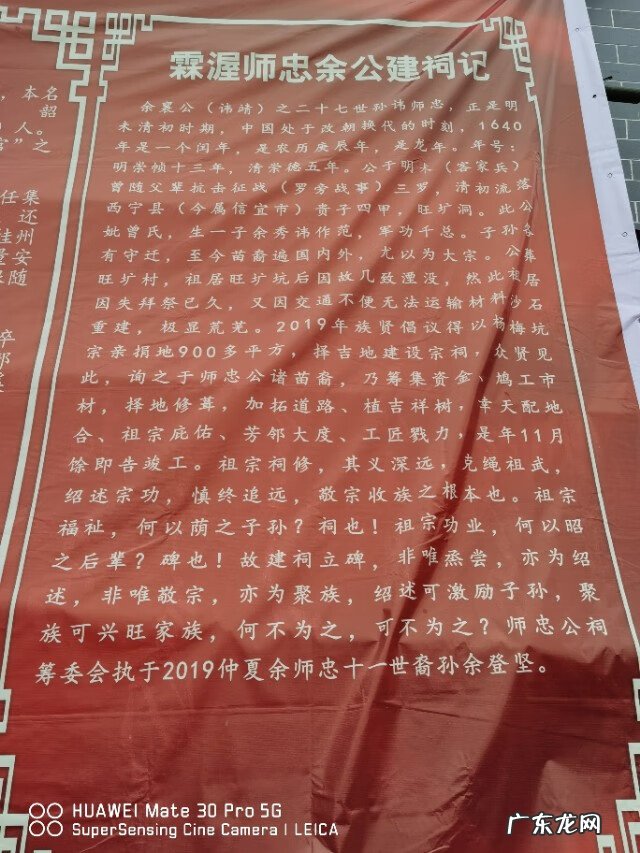 霖渥师忠余公建祠记
余襄公（讳靖）之二十七世孙讳师忠，正是明
末清初时期，中国处于改朝换代的时刻，1640
年是一个闰年，是农历庚辰年，是龙年。年号：
明崇帧十三年，清崇德五年。公于明末（客家兵）
曾随父辈抗击征战（罗旁战事）三罗，清初流落
西宁县（今属信宜市）贵子四甲，旺圹洞。此公
妣曾氏，生一子余秀讳作范，军功千总。子孙名
有守迁，至今苗裔遍国内外，尤以为大宗。公葬
旺圹村，祖居旺圹坑后因故几致湮没，然此祖居
因失拜祭已久，又因交通不便无法运输材料沙石
重建，极显荒芜。2019年族贤倡议得以杨梅坑
宗亲捐地900多平方，择吉地建设宗祠，众贤见
此，询之于师忠公诸苗裔，乃筹集资金、鸠工市
材，择地修葺，加拓道路、植吉祥树，幸天配地
合、祖宗庇佑、芳邻大度、工匠戮力，是年11月
馀即告竣工。祖宗祠修，其义深远，克绳祖武，
绍述宗功，慎终追远，敬宗收族之根本也。祖宗
福祉，何以荫之子孙？祠也！祖宗功业，何以昭
之后辈？碑也！故建祠立碑，非唯烝尝，亦为绍
述，非唯敬宗，亦为聚族，绍述可激励子孙，聚
族可兴旺家族，何不为之，可不为之？师忠公祠
筹委会执于2019仲夏余师忠十一世裔孙余登坚。
，本名
韶
人。
之
任集
还
桂州
安
随
卒
HUAWEI Mate 30 Pro 5G
SuperSensing Cine Camera | LEICA
广东龙网